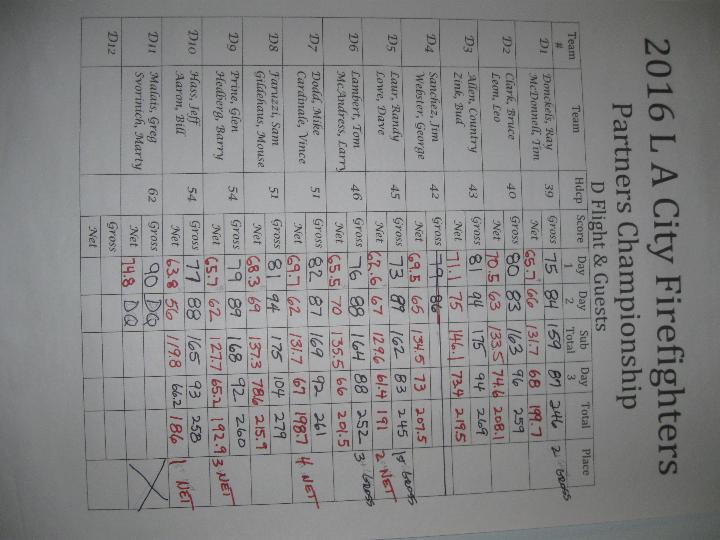 2016 L A City Firefighters
Partners Championship
D Flight & Guests
Team # Team Hdcp Score Day 1 Day 2 Sub Total Day 3 Total Place
D1 Donckels, Ray 39 Gross 75 84 159 87 246 2 GROSS
McDonnell, Tim Net 65.7 66 131.7 68 199.7
D2 Clark, Bruce 40 Gross 80 83 163 96 259
Leon, Leo Net 70.5 63 133.5 74.6 208.1
D3 Allen, Country 43 Gross 81 94 175 94 269
Zink, Bud Net 71.1 75 146.1 73.4 219.5
D4 Sanchez, Jim 42 Gross 79 86
Webster, George Net 69.5 65 134.5 73 207.5
D5 Laur, Randy 45 Gross 73 89 162 83 245 1st GROSS
Lowe, Dave Net 62.6 67 129.6 61.4 191 2 NET
D6 Lambert, Tom 46 Gross 76 88 164 88 252 3 GROSS
McAndress, Larry Net 65.5 70 135.5 66 201.5
D7 Dodd, Mike 51 Gross 82 87 169 92 261
Cardinale, Vince Net 69.7 62 131.7 67 198.7 4 NET
D8 Faruzzi, Sam 51 Gross 81 94 175 104 279
Gildehaus, Mouse Net 68.3 69 137.3 78.6 215.9
D9 Prine, Glen 54 Gross 79 89 168 92 260
Hedberg, Barry Net 65.7 62 127.7 65.2 192.9 3 NET
D10 Hass, Jeff 54 Gross 77 88 165 93 258
Aaron, Bill Net 63.8 56 119.8 66.2 186 1 NET
D11 Malais, Greg 62 Gross 90 DQ
Svorinich, Marty Net 74.8 DQ
D12 Gross
Net